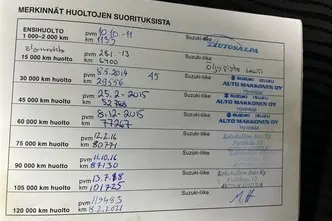 MERKINNÄT HUOLTOJEN SUORITUKSISTA
ENSIHUOLTO
1 000–2 000 km
pvm 10.10.-11
km 1123
Suzuki-liike AUTOSALPA
15 000 km huolto
pvm 28.1.-13
km 6400
Suzuki-liike Öljypiste Lahti
30 000 km huolto
pvm 8.5.2014
km 24556
45
Suzuki-liike SUZUKI ISUZU
AUTO MAKKONEN OY
Hyvinkää
45 000 km huolto
pvm 25.2-2015
km 52758
Suzuki-liike SUZUKI ISUZU
AUTO MAKKONEN OY
Hyvinkää
60 000 km huolto
pvm 8.12-2015
km 77267
Suzuki-liike SUZUKI ISUZU
AUTO MAKKONEN OY
Hyvinkää
75 000 km huolto
pvm 12.2.16
km 80771
Suzuki-liike
90 000 km huolto
pvm 11.10.16
km 87130
Suzuki-liike
105 000 km huolto
pvm 13.7.18
km 101725
Suzuki-liike
120 000 km huolto
pvm 119483
km 8.2.2021
Suzuki-liike